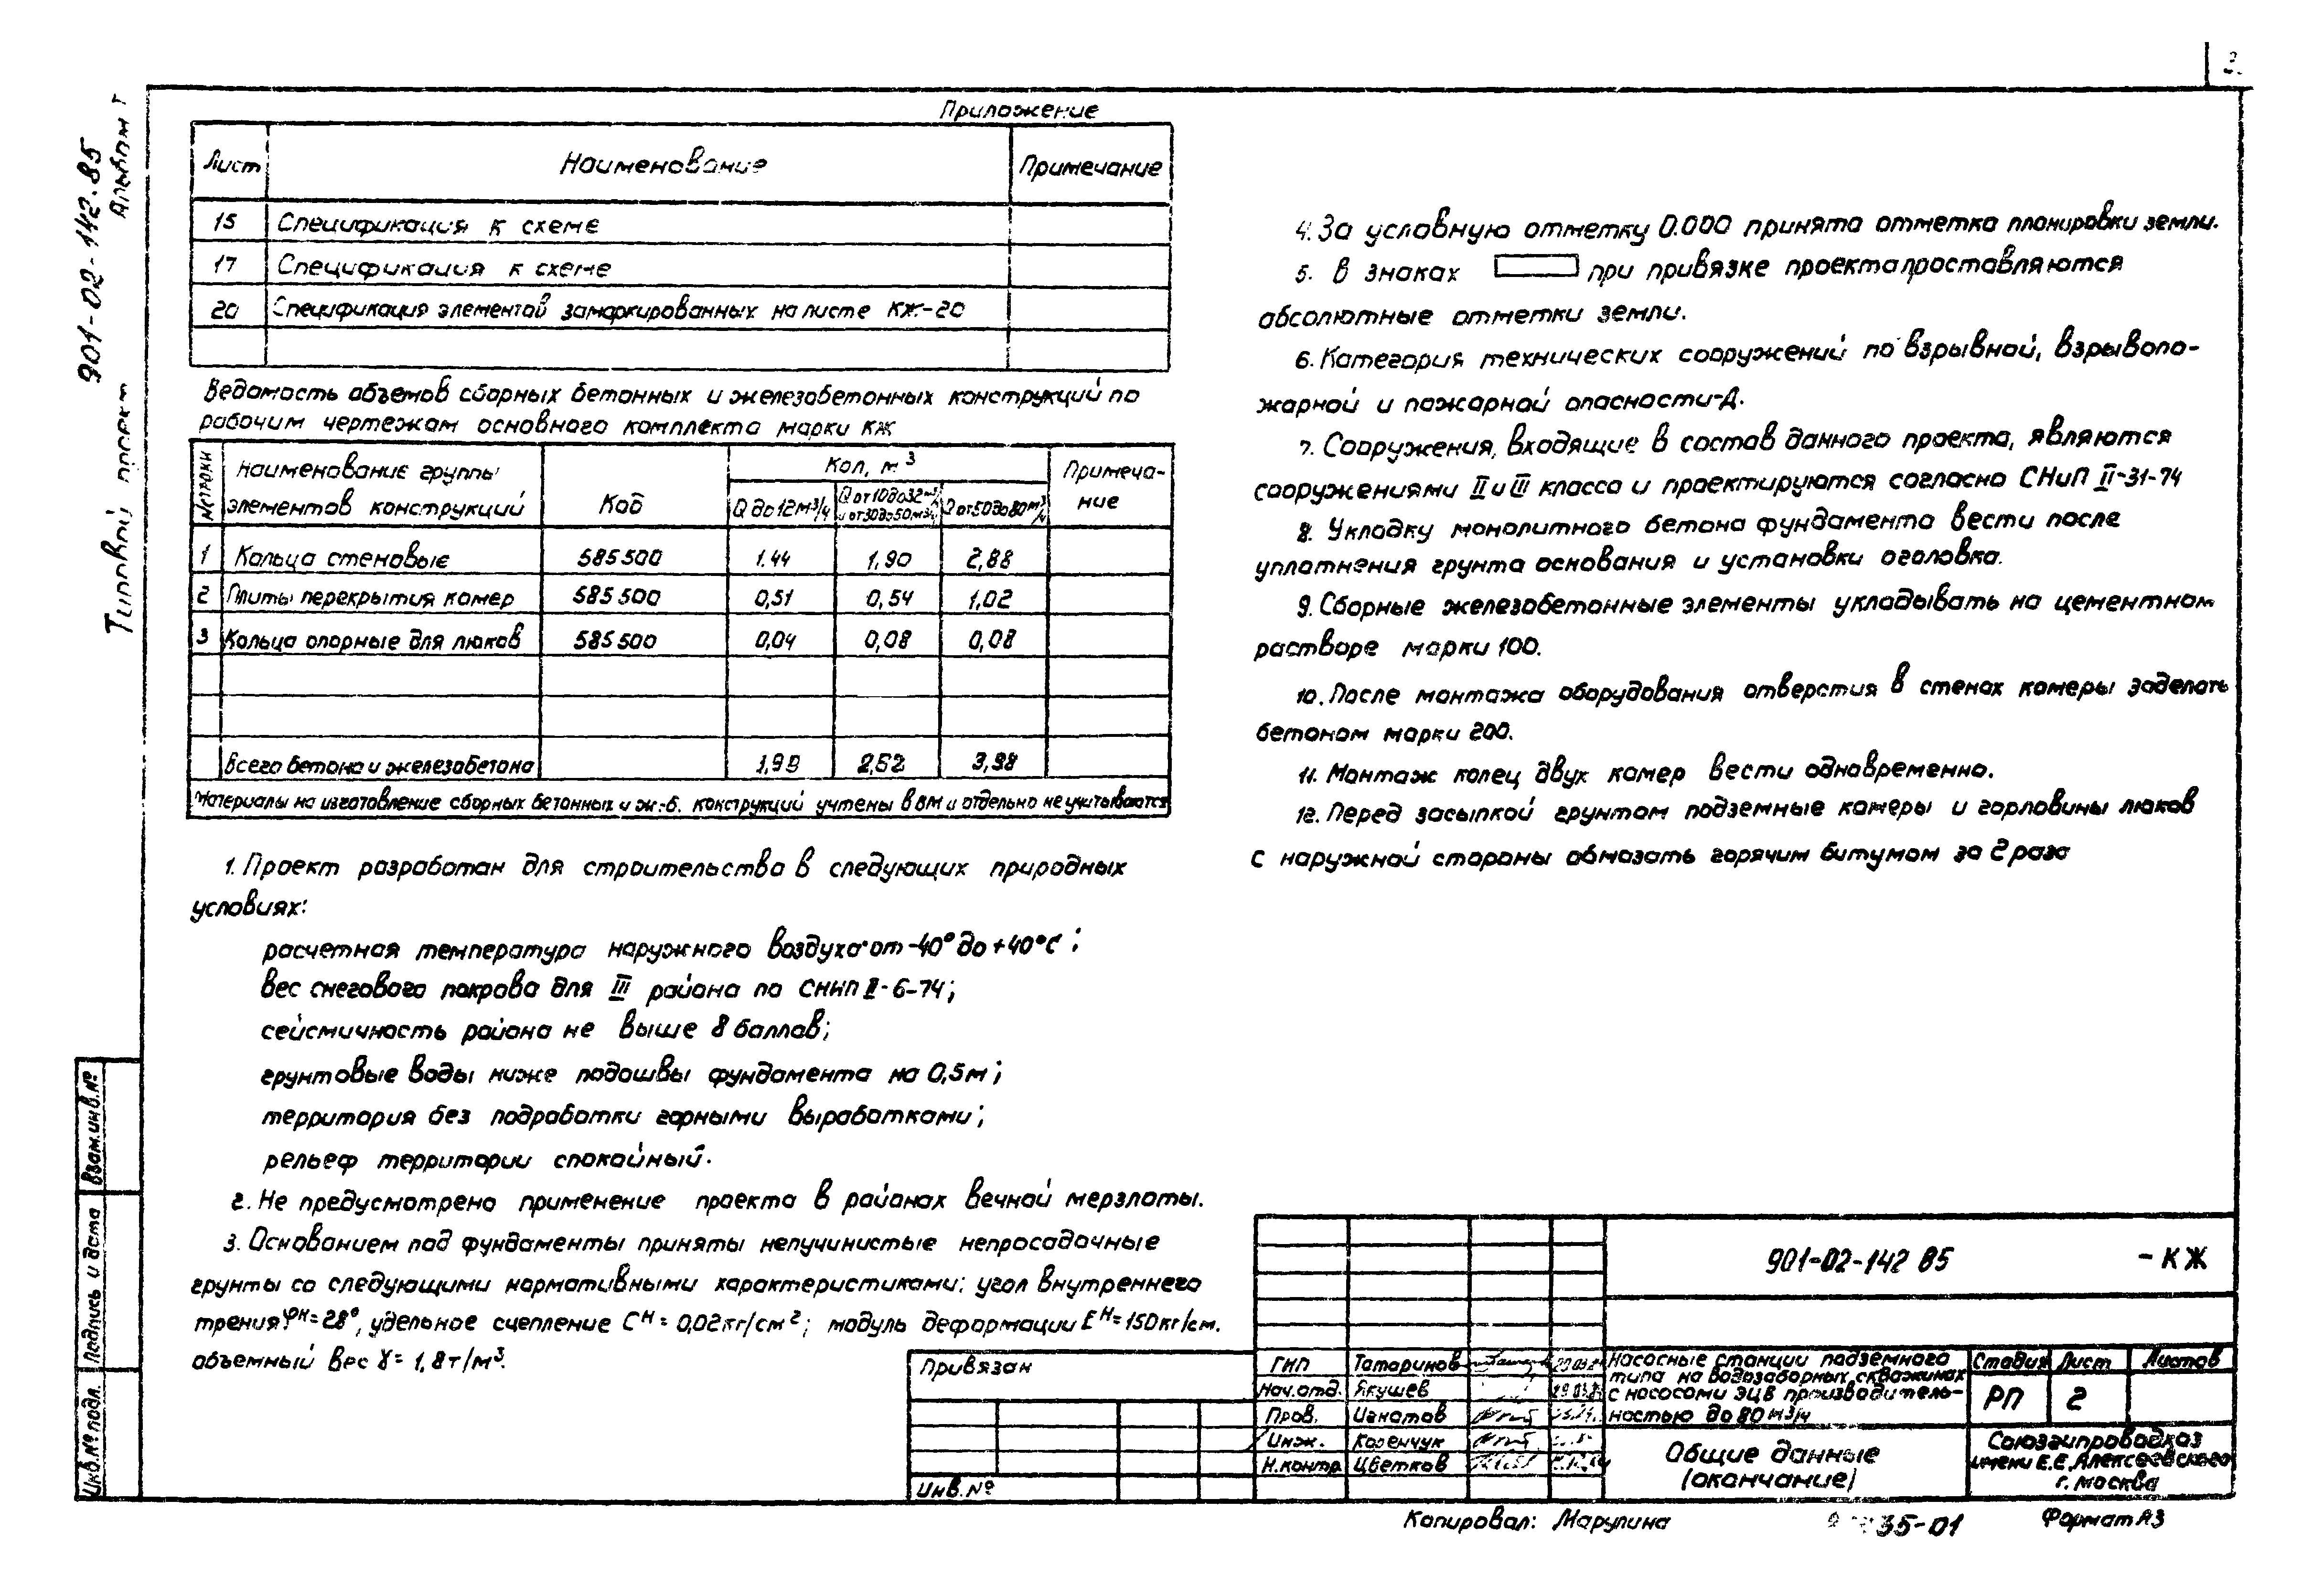 3
901-02-142.85
Альбом I
Типовой проект
Приложение
Лист Наименование Примечание
15 Спецификация к схеме
17 Спецификация к схеме
20 Спецификация элементов замаркированных на листе КЖ-20
Ведомость объемов сборных бетонных и железобетонных конструкций по
рабочим чертежам основного комплекта марки КЖ
№ строки Наименование группы элементов конструкций Код Кол, м³ Примечание
Q до 12 м³/ч Q от 10 до 32 м³/ч и от 30 до 50 м³/ч Q от 50 до 80 м³/ч
1 Кольца стеновые 585500 1.44 1,90 2,88
2 Плиты перекрытия камер 585500 0,51 0,54 1,02
3 Кольца опорные для люков 585500 0,04 0,08 0,08
Всего бетона и железобетона 1,99 2,52 3,98
Материалы на изготовление сборных бетонных и ж.-б. конструкций учтены в ВМ и отдельно не учитываются
1. Проект разработан для строительства в следующих природных
условиях:
расчетная температура наружного воздуха от -40° до +40°С;
вес снегового покрова для III района по СНиП II-6-74;
сейсмичность района не выше 8 баллов;
грунтовые воды ниже подошвы фундамента на 0,5м;
территория без подработки горными выработками;
рельеф территории спокойный.
2. Не предусмотрено применение проекта в районах вечной мерзлоты.
3. Основанием под фундаменты приняты непучинистые непросадочные
грунты со следующими нормативными характеристиками: угол внутреннего
трения φᴴ=28°, удельное сцепление Cᴴ=0,02кг/см²; модуль деформации Eᴴ=150кг/см.
объемный вес γ=1,8т/м³.
4. За условную отметку 0.000 принята отметка планировки земли.
5. В знаках при привязке проекта проставляются
абсолютные отметки земли.
6. Категория технических сооружений по взрывной, взрывопо-
жарной и пожарной опасности-Д.
7. Сооружения, входящие в состав данного проекта, являются
сооружениями II и III класса и проектируются согласно СНиП II-31-74
8. Укладку монолитного бетона фундамента вести после
уплотнения грунта основания и установки оголовка.
9. Сборные железобетонные элементы укладывать на цементном
растворе марки 100.
10. После монтажа оборудования отверстия в стенах камеры заделать
бетоном марки 200.
11. Монтаж колец двух камер вести одновременно.
12. Перед засыпкой грунтом подземные камеры и горловины люков
с наружной стороны обмазать горячим битумом за 2 раза
Взам.инв.№
Подпись и дата
Инв.№ подл.
Привязан
Инв.№
901-02-142 85 -КЖ
ГИП Татаринов
Нач.отд. Якушев
Пров. Игнатов
Инж. Козенчук
Н.контр Цветков
Насосные станции подземного
типа на водозаборных скважинах
с насосами ЭЦВ производитель-
ностью до 80 м³/ч
Стадия Лист Листов
РП 2
Общие данные
(окончание)
Союзгипроводхоз
имени Е.Е.Алексеевского
г. Москва
Копировал: Марулина
35-01
Формат А3